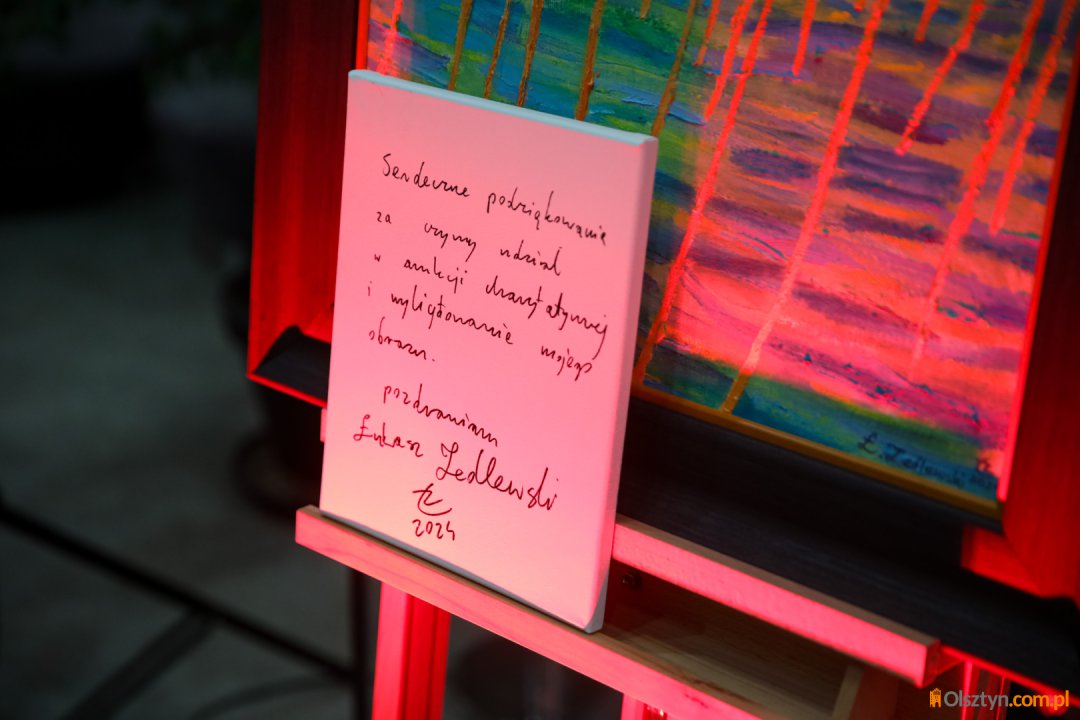 Serdeczne podziękowanie
za czynny udział
w aukcji charytatywnej
i wylicytowanie mojego
obrazu.
pozdrawiam
Łukasz Jedlewski
2024
Ł. Jedlewski
Olsztyn.com.pl